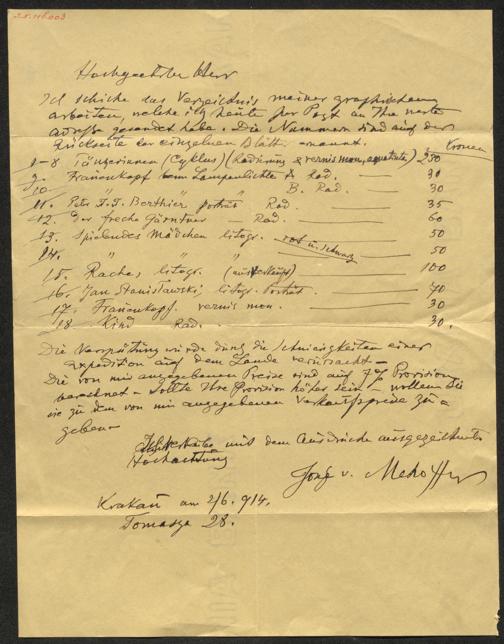 Hochgeehrter Herr
Ich schicke das Verzeichnis meiner graphischen
arbeiten, welche ich heute per Post an Ihre werte
adresse gesendet habe. Die Nummern sind auf der
Rückseite der einzelnen Blätter genannt. Kronen
1-8 Tänzerinnen (Cyklus) (Radierung & vernis mou, aquatinta) 250
9. Frauenkopf beim Lampenlichte A Rad. — 30
10. " " " B. Rad. — 30
11. Pater J. J. Berthier porträt Rad. — 35
12. Der freche Gärntner — Rad. — 60
13. Spielendes Mädchen litogr. rot u. schwarz — 50
14. " " " — 50
15. Rache, litogr. (ausverkauft) — 100
16. Jan Stanisławski litogr. Porträt. — 70
17. Frauenkopf. vernis mou. — 30
18 Kind Rad. — 30.
Die Verspätung wurde durch die Schwierigkeiten einer
expedition auf dem Lande verursacht –
Die von mir angegebenen Preise sind auf Provision
berechnet – sollte Ihre Provision höher sein – wollen Sie
sie zu dem von mir angegebenen Verkaufspreise zu-
geben –
mit dem Ausdrucke ausgezeichneter
Hochachtung
Josef v. Mehoffer
Krakau am 2/6. 914.
Tomasza 28.